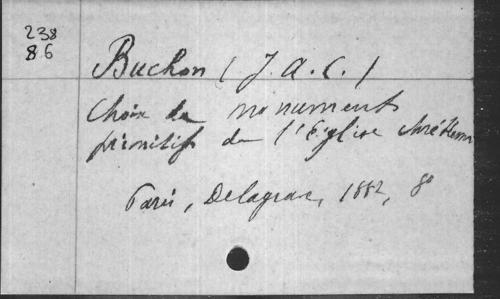 238
86
Buchon (J. A. C.)
Choix de monuments
primitifs de l'Eglise chrétienne
Paris, Delagrave, 1882, 8°